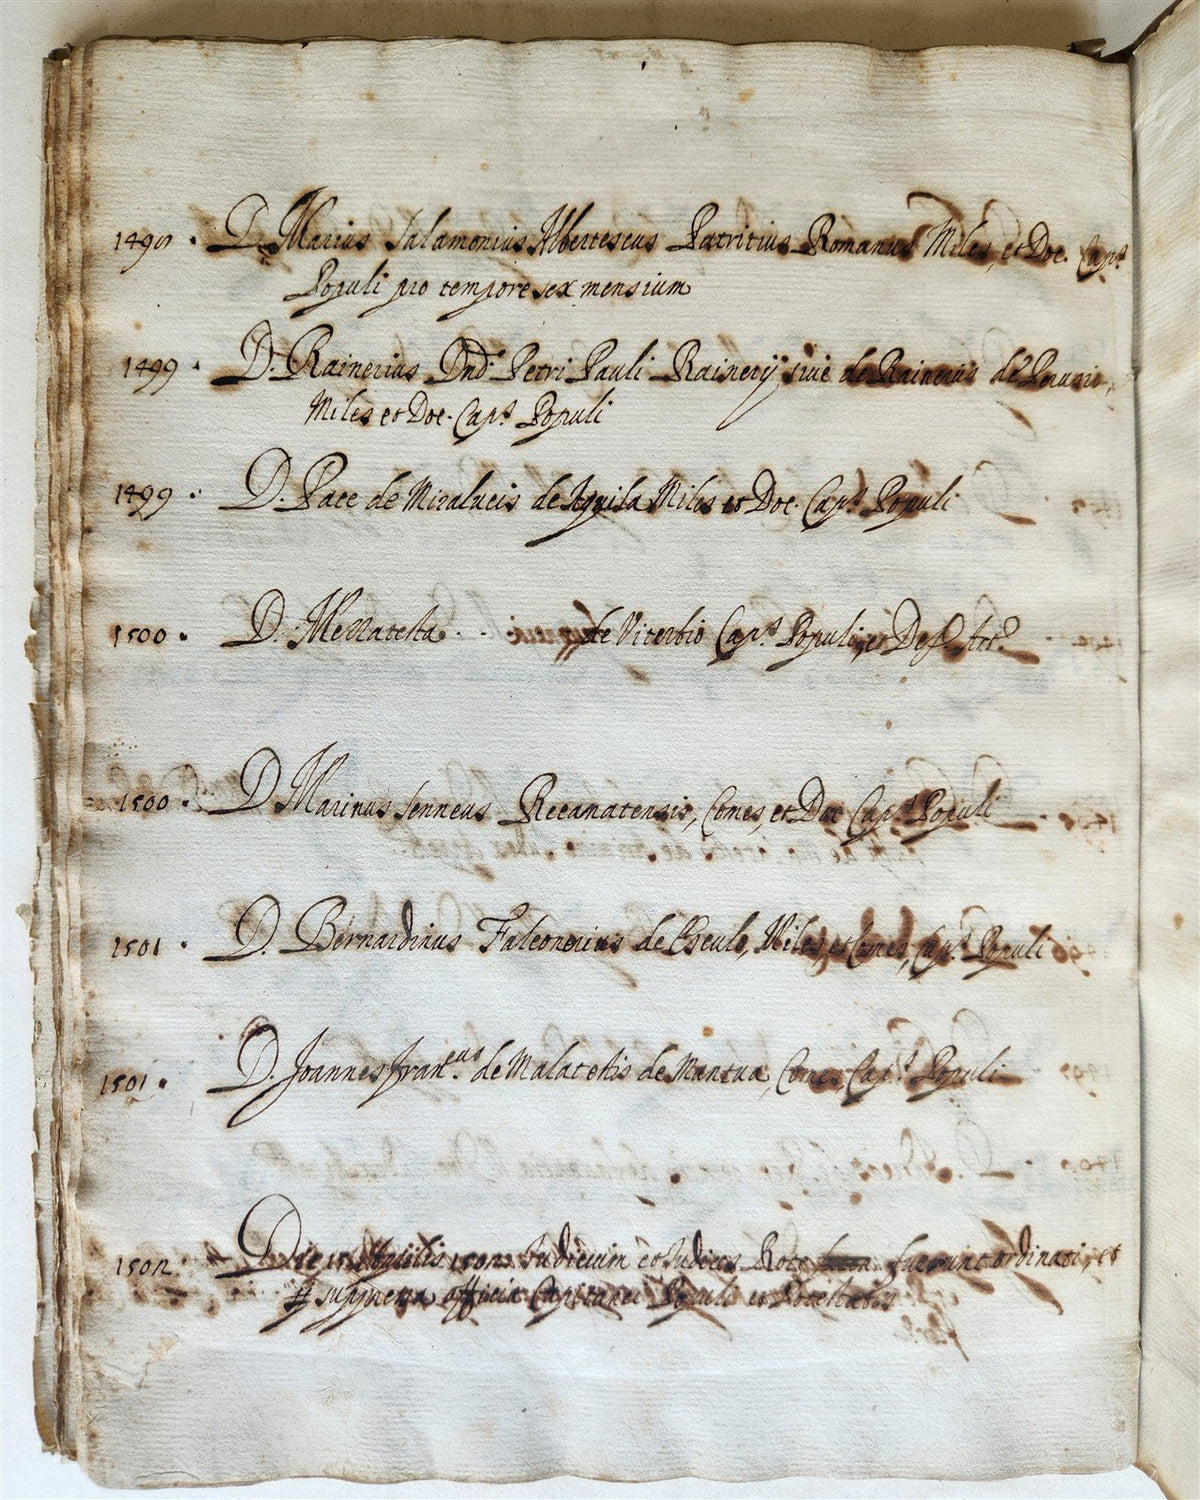 1498. D. Marius Salamonius Albertescus Patritius Romanus Miles, et Doc. Cap.s
Populi pro tempore sex mensium
1499. D. Rainerius Dnd. Petri Pauli Rainerij sive de Raineriis de Perusio,
Miles et Doc. Cap.s Populi
1499. D. Pace de Miralucis de Aquila Miles et Doc. Cap.s Populi
1500. D. Mezzatesta . . de Viterbio Cap.s Populi, et Def.
1500. D. Marinus Senneus Recanatensis, Comes, et Doc Cap.s Populi
1501. D. Bernardinus Falconerius de Esculo, Miles, et Comes, Cap.s Populi
1501. D. Joannes Fran.cus de Malatestis de Mantua, Comes, Cap.s Populi
1502. Die 15 Aprilis 1502 Judicum et Judices Rote fuerunt ordinati, et
officia Capitanei Populi et Potestatis